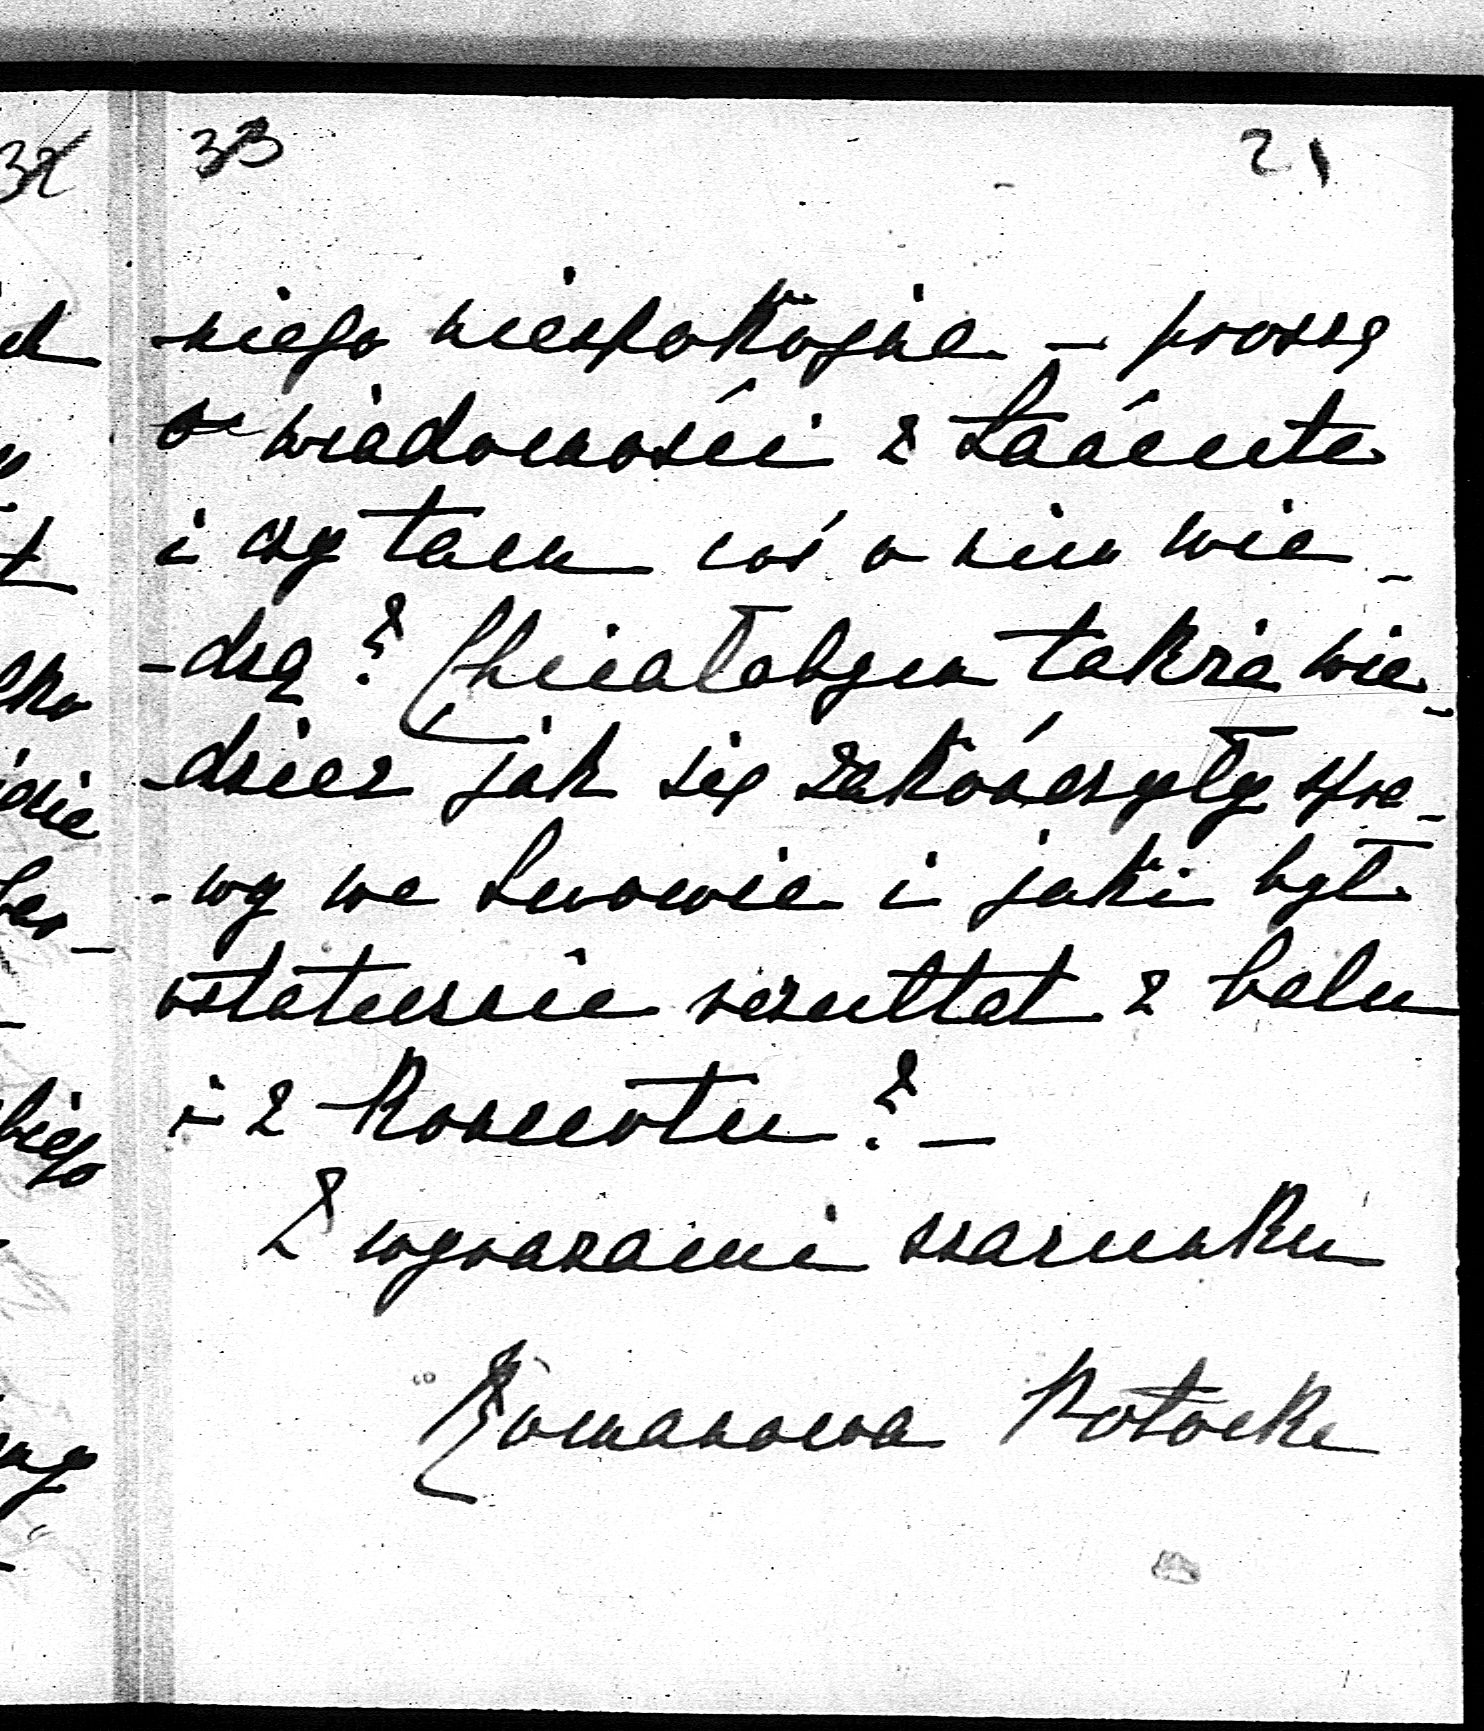 33 21
niego niespokojna — proszę
o wiadomości z Łańcuta
i czy tam coś o nim wie-
-dzą? Chciałabym także wie-
-dzieć jak się zakończyły spra-
-wy we Lwowie i jaki był
ostatecznie rezultat z balu
i z koncertu? —
Z wyrazami szacunku
Romanowa Potocka